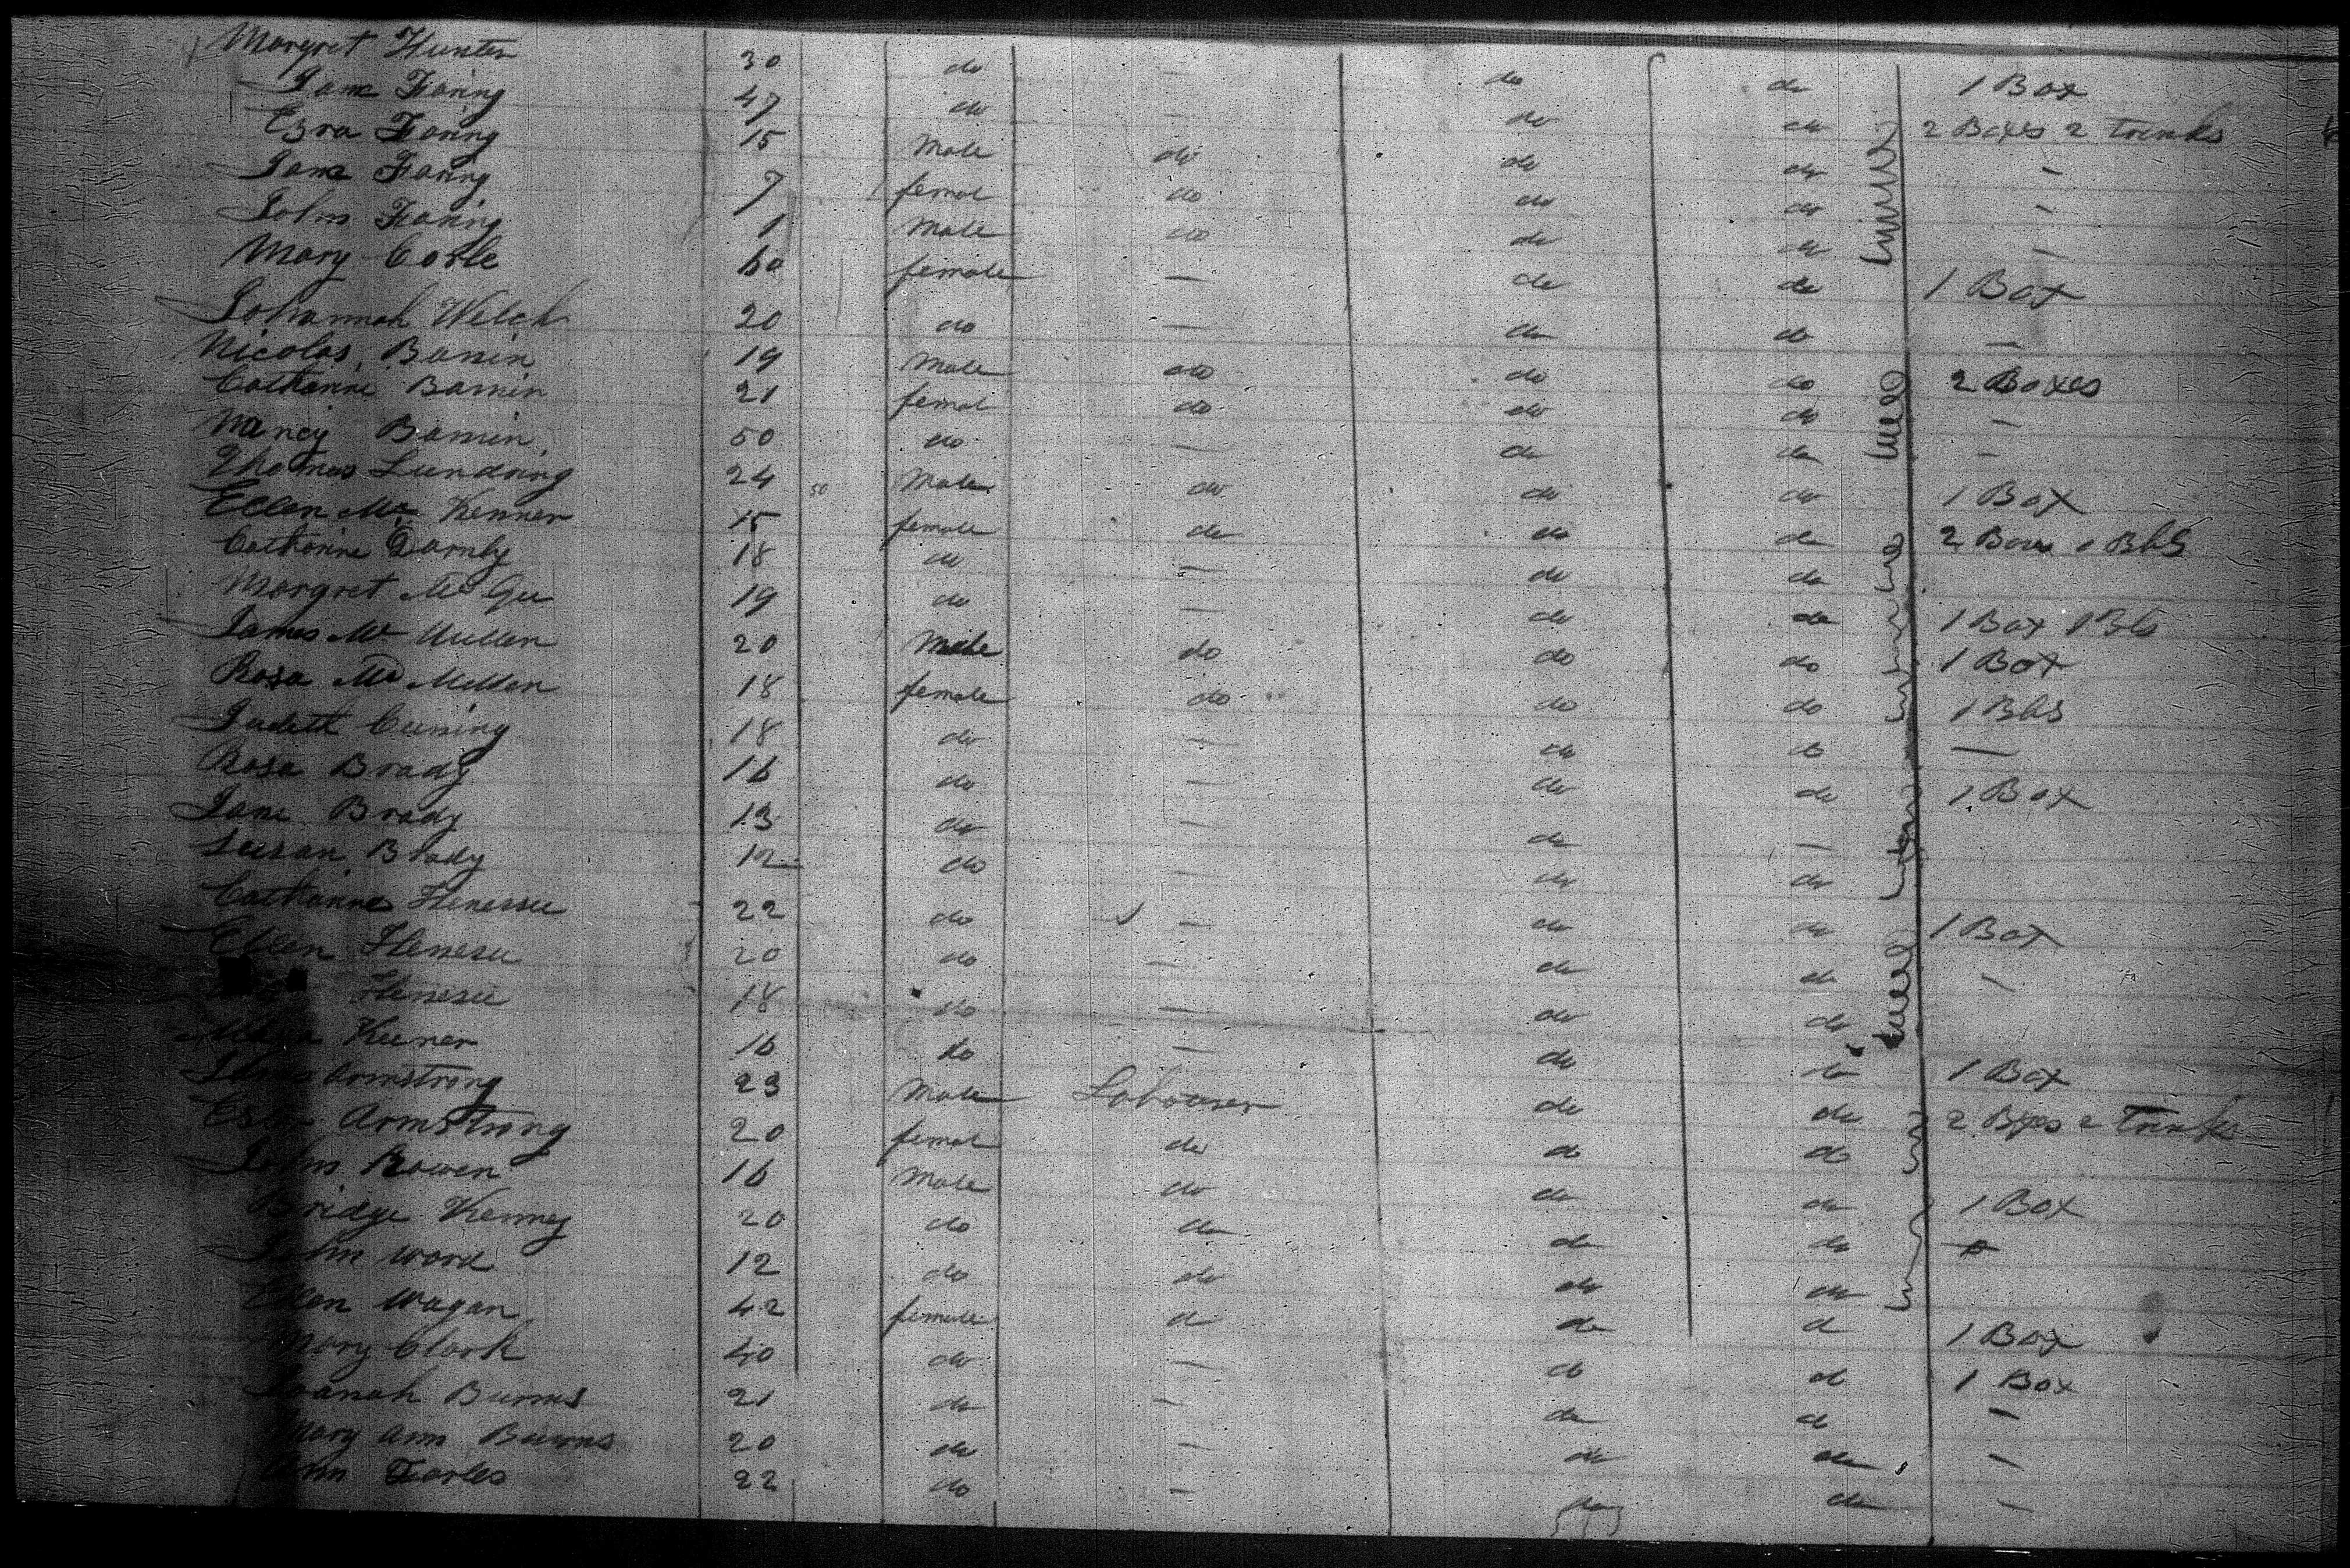 Margret Hunter 30 do — do do 1 Box
Jane Faring 47 do — do do 2 Boxes 2 Trunks
Esra Faring 15 Male do do do —
Jane Faring 7 femal do do do —
John Faring 1 Male do do do —
Mary Corle 60 female — do do 1 Box
Johannah Welch 20 do — do do —
Nicolas Bannin 19 Male do do do 2 Boxes
Catharine Bannin 21 femal do do do —
Nancy Bannin 50 do — do do —
Thomas Lundring 24 50 Male do do do 1 Box
Ellen Mc Kenner 15 female do do do 2 Boxes 1 Bbls
Catharine Darnby 18 do — do do
Margret Mc Gee 19 do — do do 1 Box 1 Bbls
James Mc Mullen 20 Male do do do 1 Box
Rosa Mc Mullen 18 female do do do 1 Bbls
Judett Cuning 18 do — do do —
Rosa Brady 16 do — do do 1 Box
Jane Brady 13 do — do —
Susan Brady 12 do — do do
Catharine Henessee 22 do — do do 1 Box
Ellen Henesee 20 do — do do —
Henesee 18 do — do do
Keener 16 do — do do 1 Box
Armstrong 23 Male Labourer do do 2 Bxes 2 Trunks
Armstrong 20 femal do do do
John Rowen 16 Male do do do 1 Box
Bridge Kenney 20 do do do do
John Ward 12 do do do do
Ellen Wagan 42 female do do d 1 Box
Mary Clark 40 do — do d 1 Box
Burns 21 do — do d —
Mary Ann Burns 20 do — do do —
Ann Farles 22 do — do do —